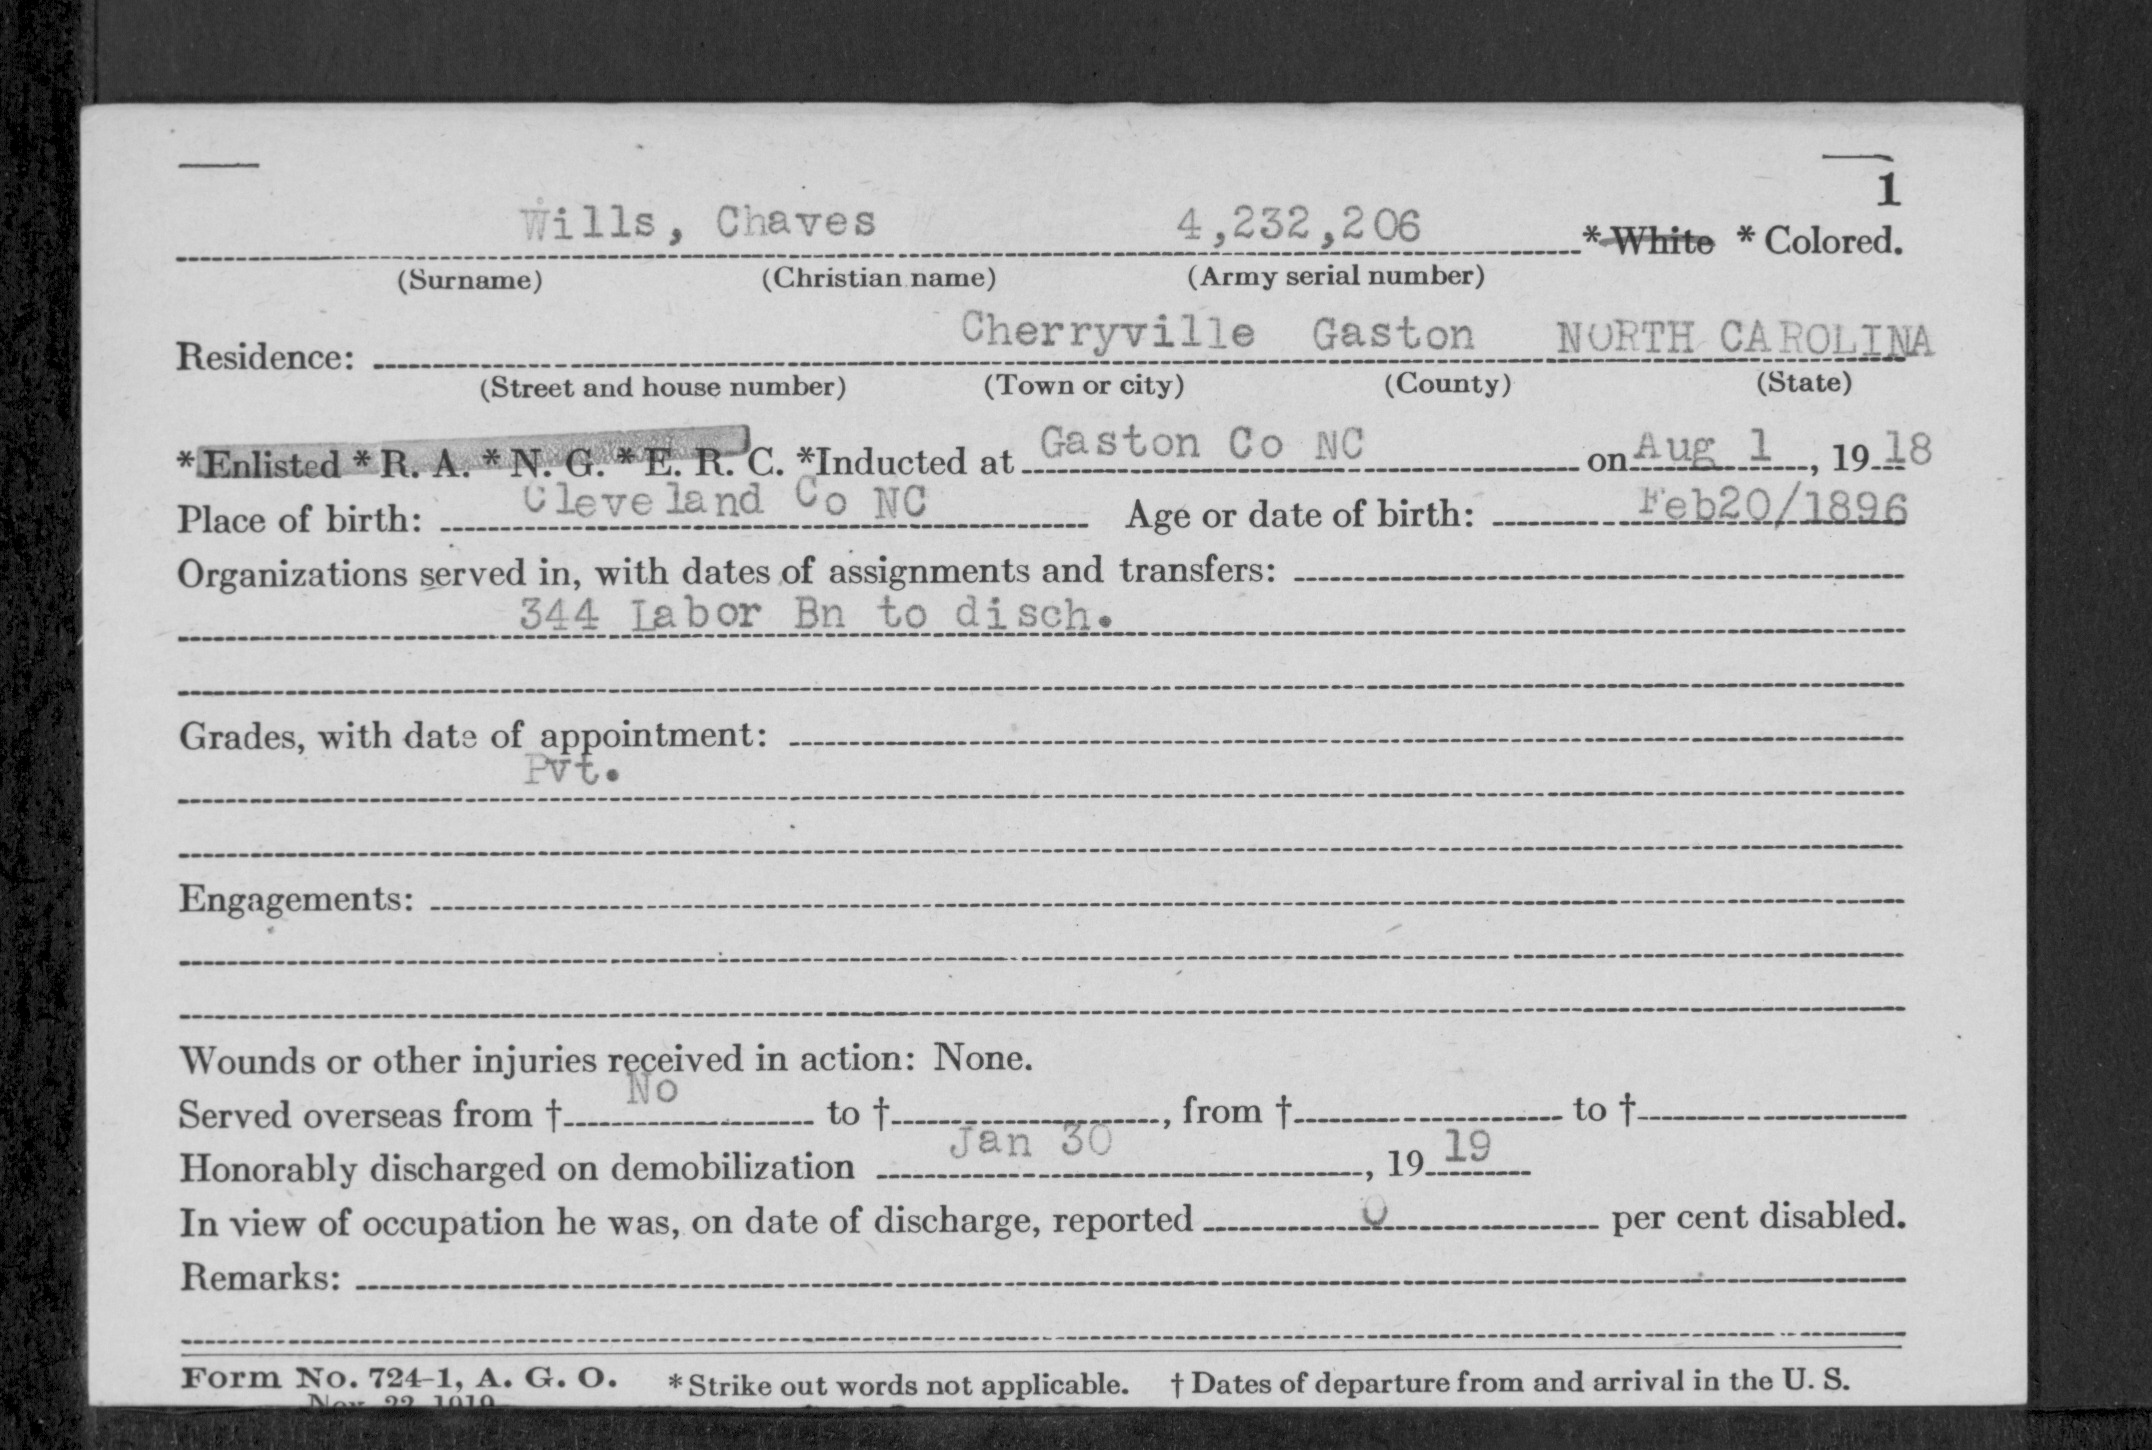 1
Wills, Chaves 4,232,206 *White *Colored.
(Surname) (Christian name) (Army serial number)
Residence: Cherryville Gaston NORTH CAROLINA
(Street and house number) (Town or city) (County) (State)
*Enlisted *R. A. *N. G. *E. R. C. *Inducted at Gaston Co NC on Aug 1, 1918
Place of birth: Cleveland Co NC Age or date of birth: Feb20/1896
Organizations served in, with dates of assignments and transfers:
344 Labor Bn to disch.
Grades, with date of appointment:
Pvt.
Engagements:
Wounds or other injuries received in action: None.
Served overseas from † No to †, from † to †
Honorably discharged on demobilization Jan 30, 1919
In view of occupation he was, on date of discharge, reported 0 per cent disabled.
Remarks:
Form No. 724-1, A. G. O. *Strike out words not applicable. † Dates of departure from and arrival in the U. S.
Nov. 22, 1919